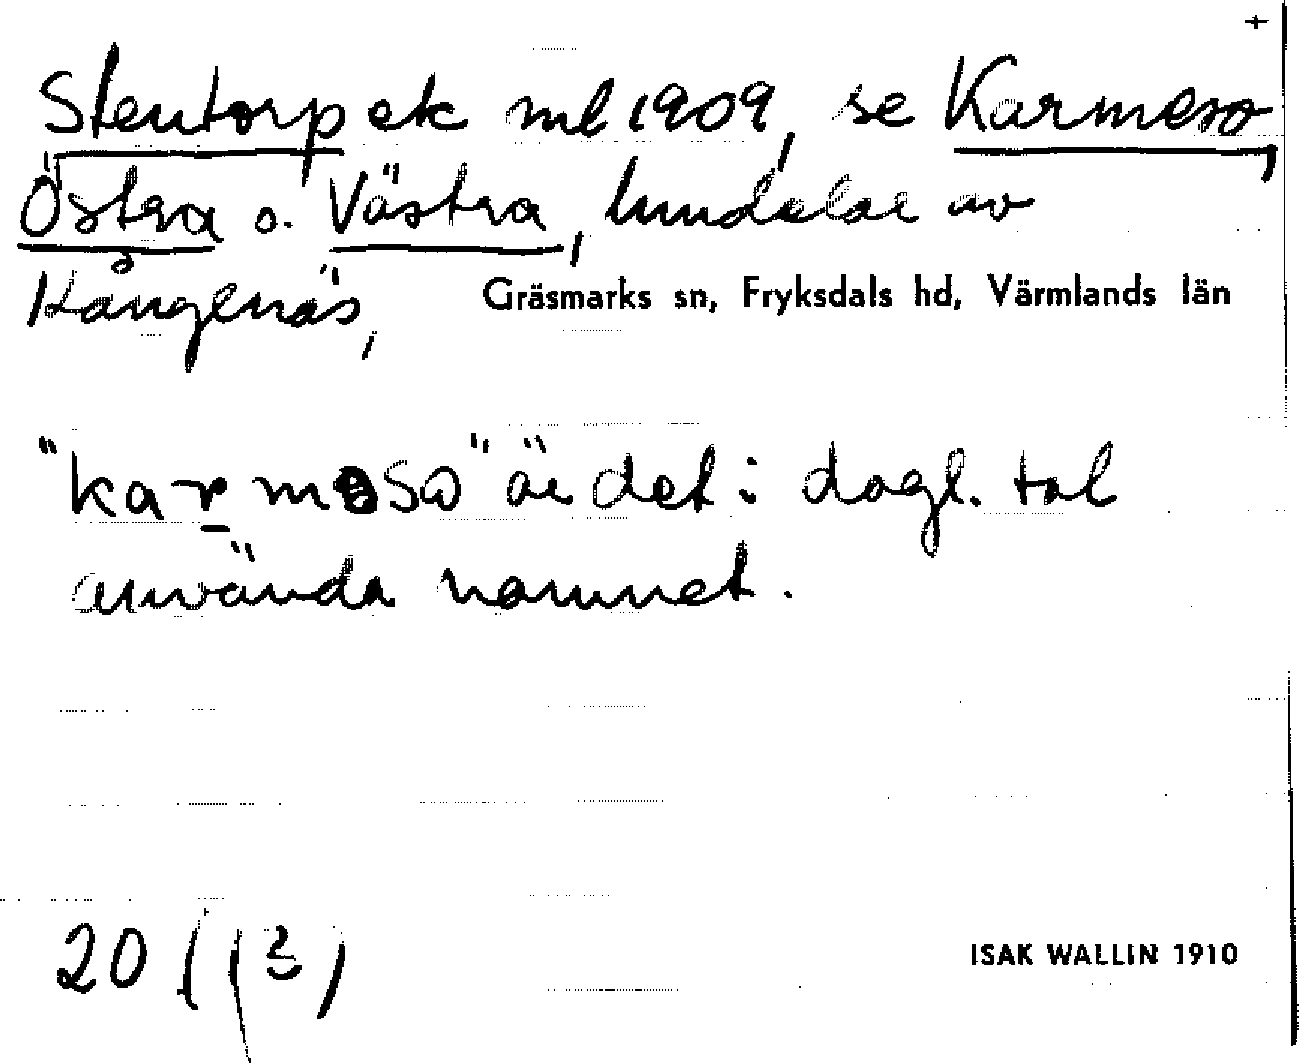 +
Stentorp ek ml 1909, se Karmeso,
Östra o. Västra, lundelar av
Kångenäs, Gräsmarks sn, Fryksdals hd, Värmlands län
"karmeso" är det i dagl. tal
använda namnet.
20 ( (3)
ISAK WALLIN 1910